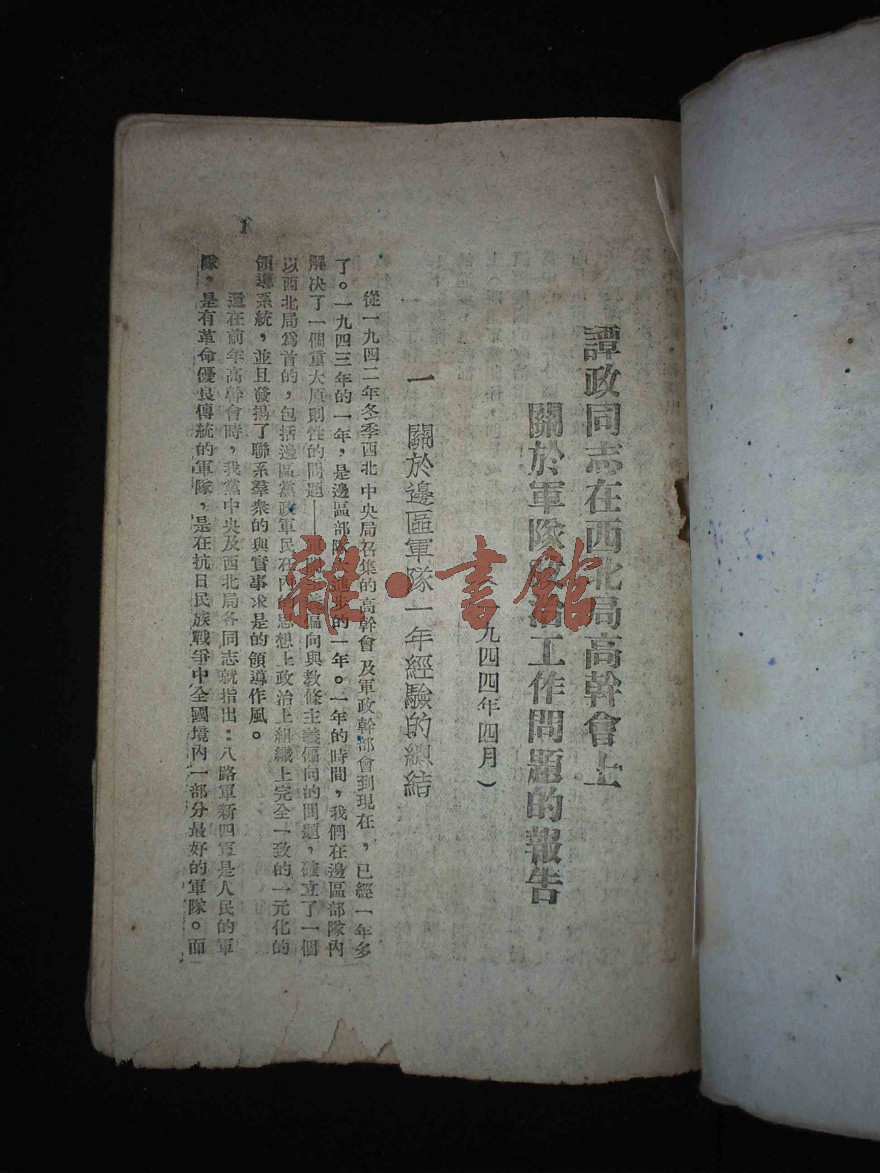 譚政同志在西北局高幹會上
關於軍隊政治工作問題的報告
(一九四四年四月)
一 關於邊區軍隊一年經驗的總結
從一九四二年冬季西北中央局召集的高幹會及軍政幹部會到現在,已經一年多
了。一九四三年的一年,是邊區部隊大進步的一年。一年的時間,我們在邊區部隊內
解决了一個重大原則性的問題——偏向與教條主義偏向的問題,確立了一個
以西北局爲首的,包括邊區黨政軍民在內的思想上政治上組織上完全一致的一元化的
領導系統,並且發揚了聯系羣衆的與實事求是的領導作風。
還在前年高幹會時,我黨中央及西北局各同志就指出:八路軍新四軍是人民的軍
隊,是有革命優良傳統的軍隊,是在抗日民族戰爭中全國境內一部分最好的軍隊。而
1
雜·書館